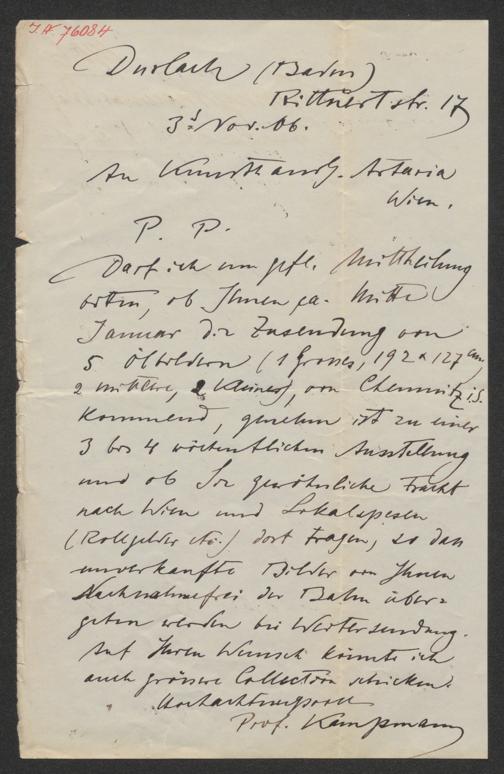 J.N. 76084
Durlach (Baden)
Rittnertstr. 17
3ᵗ Nov. 06.
An Kunsthandlg. Artaria
Wien.
P. P.
Darf ich um gefl. Mittheilung
bitten, ob Ihnen ca. Mitte
Januar die Zusendung von
5 Ölbildern (1 Grosses, 192 x 127 cm,
2 mittlere, 2 kleine), von Chemnitz i/S.
kommend, genehm ist zu einer
3 bis 4 wöchentlichen Ausstellung
und ob Sie gewöhnliche Fracht
nach Wien und Lokalspesen
(Rollgelder etc.) dort tragen, so dass
unverkaufte Bilder von Ihnen
Nachnahmefrei der Bahn über-
geben werden bei Weitersendung.
Auf Ihren Wunsch könnte ich
auch grössere Collection schicken.
Hochachtungsvoll
Prof. Kampmann